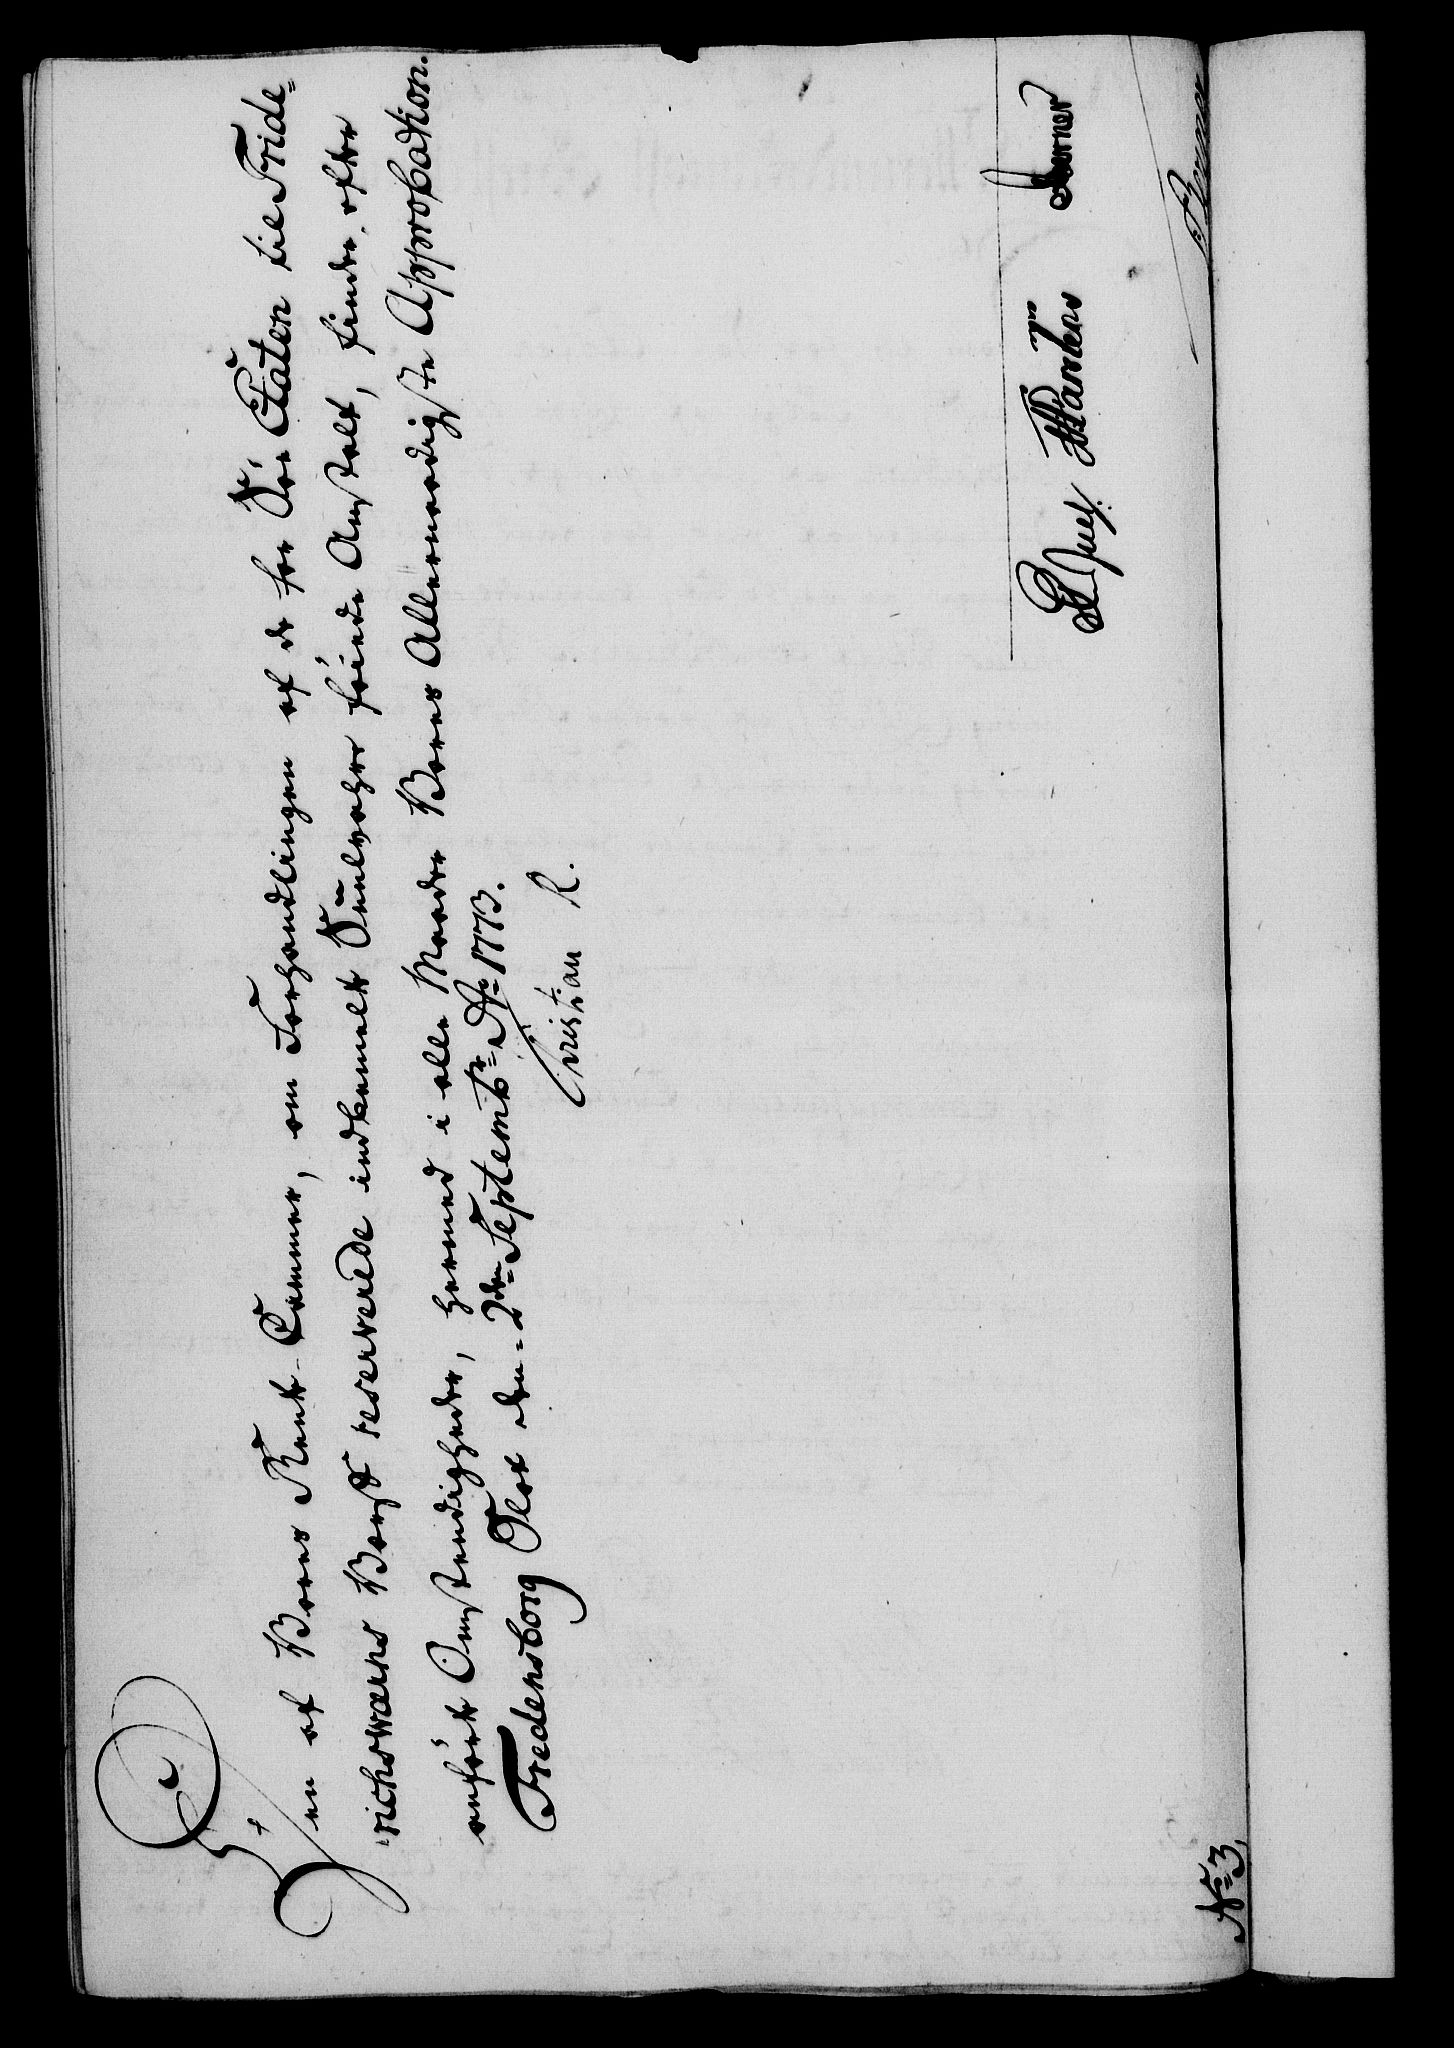 Den af Vores Rente-Cammer, om Forhandlingen af de for Søe Etaten til Fride-
richsværns Værft reserverede indkomne Sunlvahr føiede Anstalt, finder, efter
anførte Omstændigheder, hermed i alle Maader Vores Allernaadigste Approbation.
Fredensborg Slot den 2den Septembr: Ao 1773.
Christian R.
Juel. Pauckens Berner
N: 3,